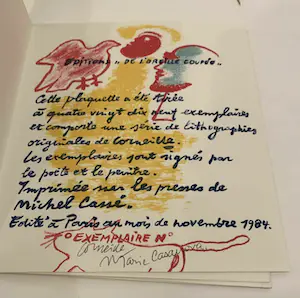 EDITIONS " DE L'OREILLE COUPÉE "
Cette plaquette a été tirée
à quatre vingt dix neuf exemplaires
et comporte une série de lithographies
originales de Corneille.
Les exemplaires sont signés par
le poète et le peintre.
Imprimée sur les presses de
Michel Cassé.
Edité à Paris au mois de novembre 1984.
EXEMPLAIRE N°
Corneille
Marie